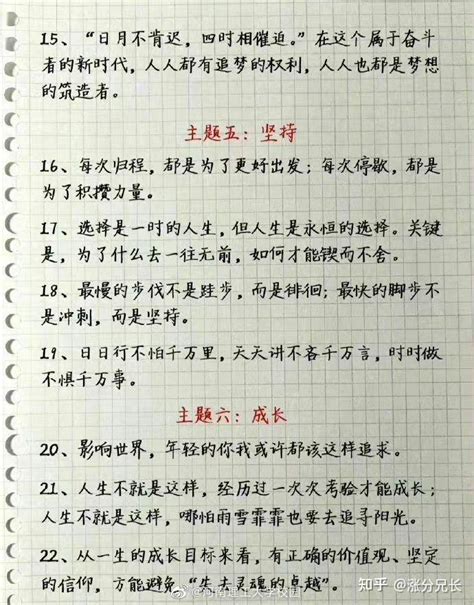 15、“日月不肯迟，四时相催迫。”在这个属于奋斗
者的新时代，人人都有追梦的权利，人人也都是梦想
的筑造者。
主题五：坚持
16、每次归程，都是为了更好出发；每次停歇，都是
为了积攒力量。
17、选择是一时的人生，但人生是永恒的选择。关键
是，为了什么去一往无前，如何才能锲而不舍。
18、最慢的步伐不是跬步，而是徘徊；最快的脚步不
是冲刺，而是坚持。
19、日日行不怕千万里，天天讲不吝千万言，时时做
不惧千万事。
主题六：成长
20、影响世界，年轻的你我或许都该这样追求。
21、人生不就是这样，经历过一次次考验才能成长；
人生不就是这样，哪怕雨雪霏霏也要去追寻阳光。
22、从一生的成长目标来看，有正确的价值观、坚定
的信仰，方能避免“失去灵魂的卓越”。
知乎 @涨分兄长
@河南理工大学校园